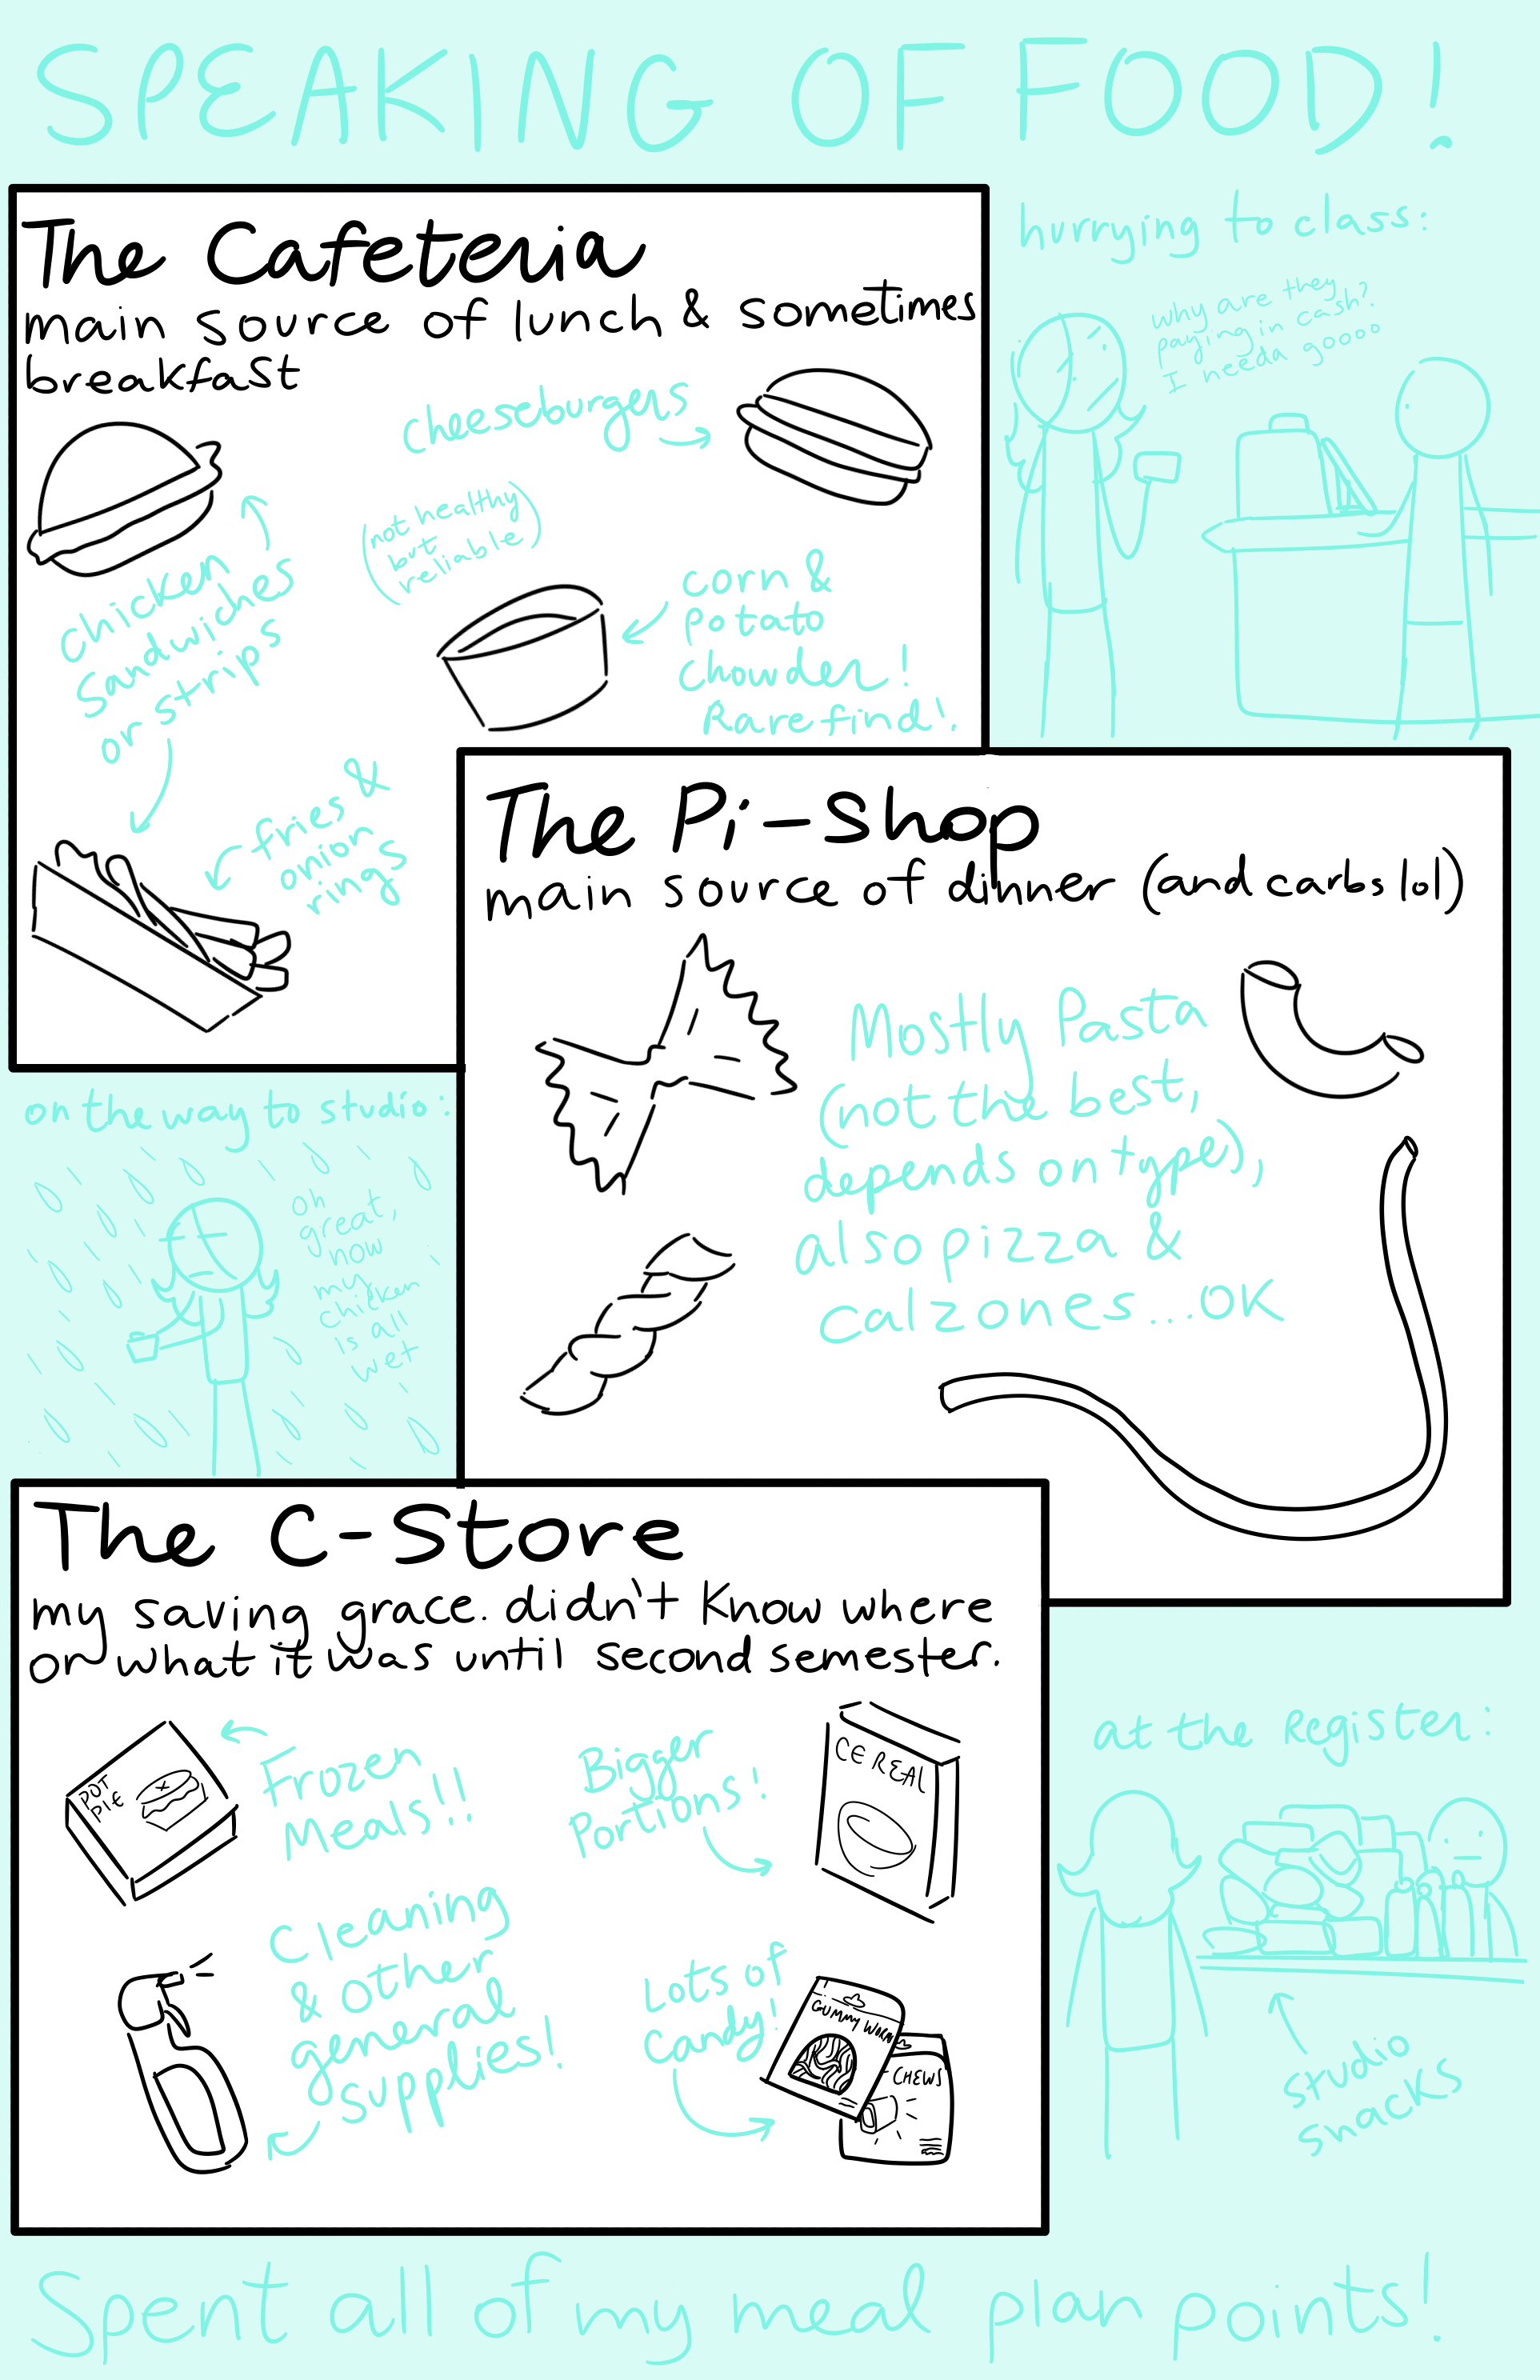 SPEAKING OF FOOD!
The Cafeteria
main source of lunch & sometimes
breakfast
cheeseburgers
(not healthy
but
reliable)
Chicken
Sandwiches
or strips
corn &
Potato
Chowder!
Rare find!
fries &
onion
rings
hurrying to class:
why are they
paying in cash?
I needa goooo
The Pi-Shop
main source of dinner (and carbs lol)
Mostly Pasta
(not the best,
depends on type),
also pizza &
calzones...OK
on the way to studio:
oh
great,
now
my
chicken
is all
wet
The C-Store
my saving grace. didn't know where
or what it was until second semester.
POT
PIE
Frozen
Meals!!
Bigger
Portions!
CEREAL
Cleaning
& other
general
supplies!
Lots of
Candy!
GUMMY WORM
CHEWS
at the Register:
studio
snacks
Spent all of my meal plan points!